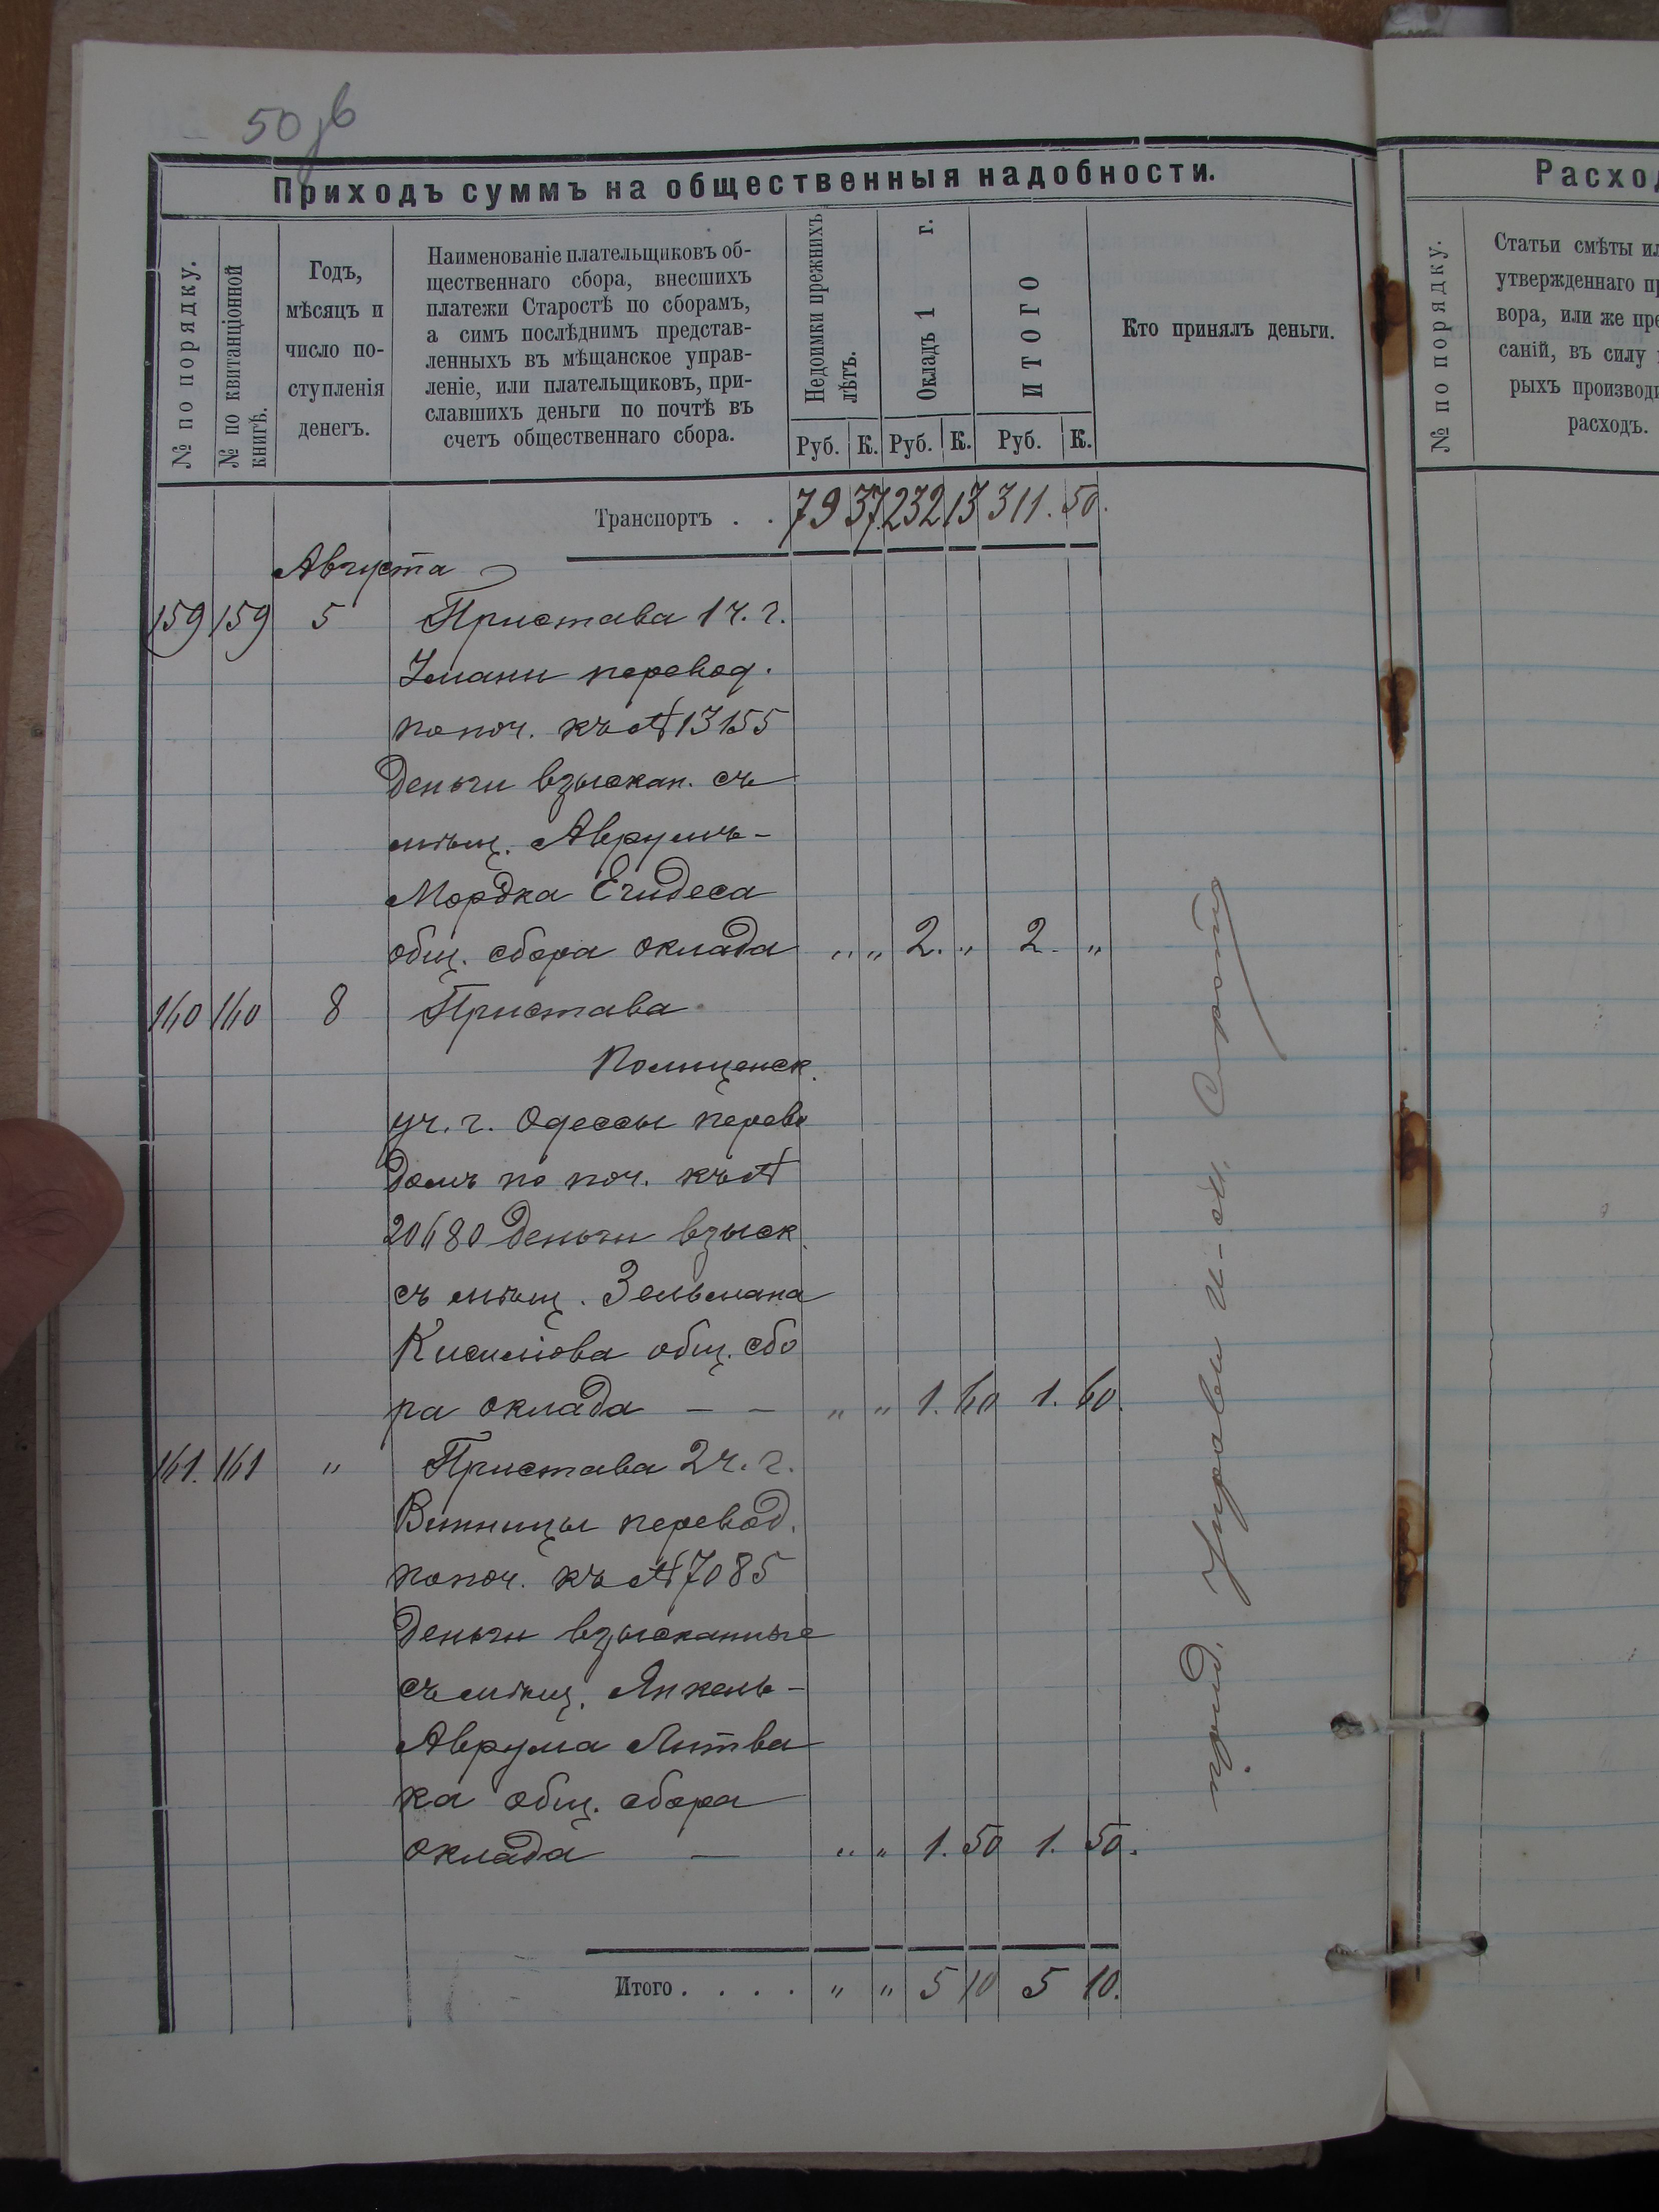 50 об
Приходъ суммъ на общественныя надобности.
№ по порядку.
№ по квитанціонной книгѣ.
Годъ,
мѣсяцъ и
число по-
ступленія
денегъ.
Наименованіе плательщиковъ об-
щественнаго сбора, внесшихъ
платежи Старостѣ по сборамъ,
а симъ послѣднимъ представ-
ленныхъ въ мѣщанское управ-
леніе, или плательщиковъ, при-
славшихъ деньги по почтѣ въ
счетъ общественнаго сбора.
Недоимки прежнихъ
лѣтъ.
Окладъ 1 г.
ИТОГО
Кто принялъ деньги.
Руб. К. Руб. К. Руб. К.
Транспортъ . . 79 37 232 13 311. 50.
Августа
159 159 5 Пристава 1 ч. г.
Умани перевод.
по поч. къ № 13155
деньги взыскан. съ
мѣщ. Аврумъ-
Мордка Егидеса
общ. сбора оклада „ „ 2. „ 2. „
160 160 8 Пристава
ул. г. Одессы перево
домъ по поч. къ №
20680 деньги взыск.
съ мѣщ. Зельмана
общ. сбо
ра оклада – – „ „ 1. 60 1. 60.
161. 161 „ Пристава 2 ч. г.
Винницы перевод.
по поч. къ № 7085
деньги взысканные
съ мѣщ. Янкель-
Аврума Литва
ка общ. сбора
оклада — „ „ 1. 50 1. 50.
Итого . . . . „ „ 5 10 5 10.
Управы
Расход
№ по порядку.
Статьи смѣты ил
утвержденнаго пр
вора, или же пре
саній, въ силу
рыхъ производи
расходъ.